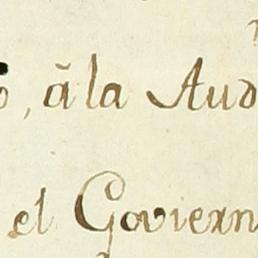 , ã la Aud
el Goviern